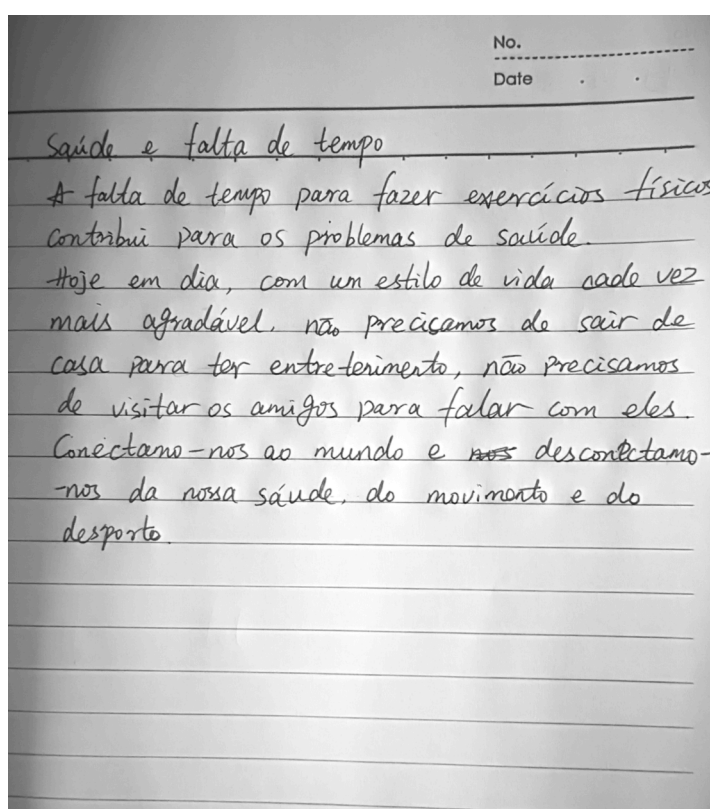 No.
Date . .
Saúde e falta de tempo
A falta de tempo para fazer exercícios físicos
contribui para os problemas de saúde.
Hoje em dia, com um estilo de vida cade vez
mais agradável, não precisamos de sair de
casa para ter entretenimento, não precisamos
de visitar os amigos para falar com eles.
Conectamo-nos ao mundo e desconectamo-
-nos da nossa sáude, do movimento e do
desporto.